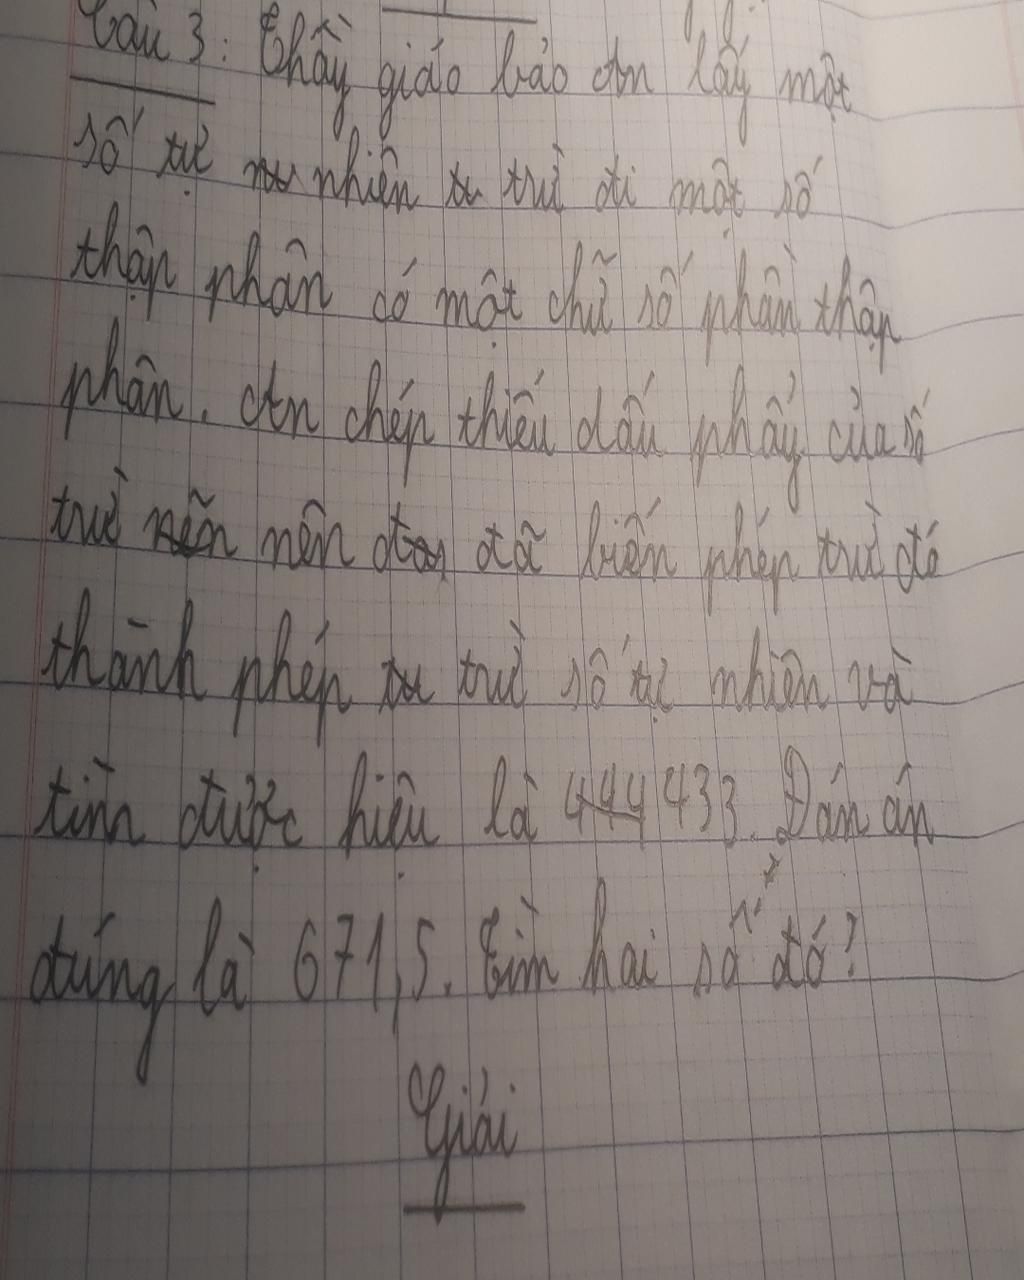 Câu 3: Thầy giáo bảo An lấy một
số tự nhiên trừ đi một số
thập phân có một chữ số phần thập
phân. An chép thiếu dấu phẩy của số
trừ nên đã biến phép trừ đó
thành phép trừ số tự nhiên và
tìm được hiệu là 433. Đáp án
đúng là 671,5. Tìm hai số đó?
Giải